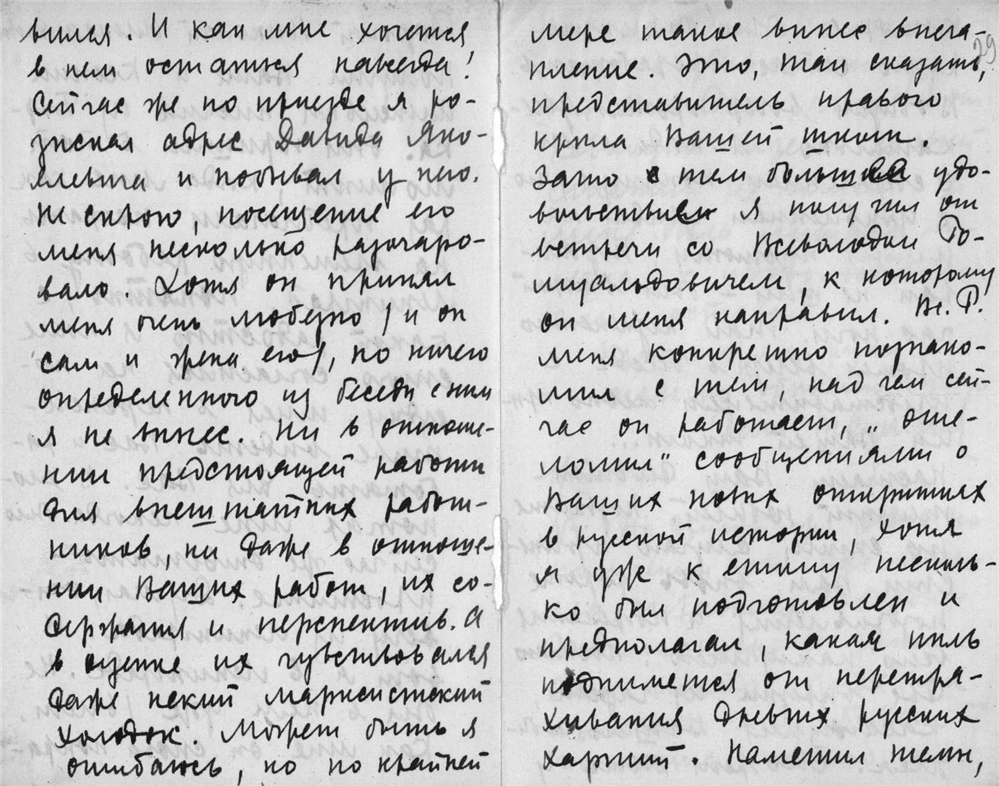 вился. И как мне хочется
в нем остаться навсегда!
Сейчас же по приезде я ра-
зыскал адрес Давида Яко-
влевича и побывал у него.
Не скрою, посещение его
меня несколько разочаро-
вало. Хотя он принял
меня очень любезно (и он
сам и жена его), но ничего
определенного из беседы с ним
я не вынес. Ни в отноше-
нии предстоящей работы
для внештатных работ-
ников ни даже в отноше-
нии Ваших работ, их со-
держания и перспектив. А
в оценке их чувствовался
даже некий марксистский
холодок. Может быть я
ошибаюсь, но по крайней
29
мере такое вынес впеча-
тление. Это, так сказать,
представитель правого
крыла Вашей школы.
Зато с тем большее удо-
вольствие я получил от
встречи со Всеволодом Ро-
муальдовичем, к которому
он меня направил. Вс. Р.
меня конкретно познако-
мил с тем, над чем сей-
час он работает, „оше-
ломил" сообщениями о
Ваших новых открытиях
в русской истории, хотя
я уже к этому несколь-
ко был подготовлен и
предполагал, какая пыль
поднимется от перетря-
хивания древних русских
хартий. Наметил темы,